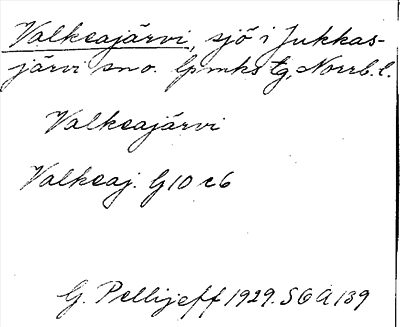 Valkeajärvi, sjö i Jukkas-
järvi sno. lpmks tg, Norrb. l.
Valkeajärvi
Valkeaj. G10 c6
G. Pellijeff 1929. SGA 139